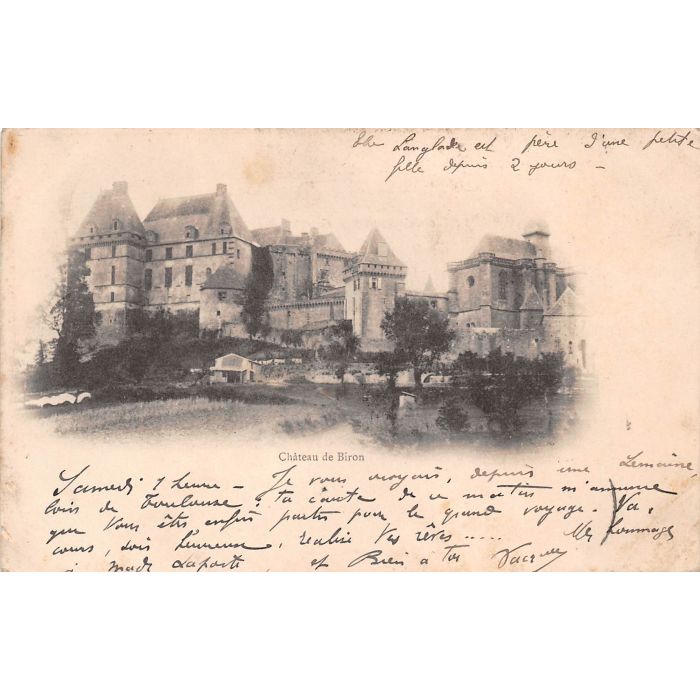 Langlade est père d'une petite
fille depuis 2 jours —
Château de Biron
Samedi 1 heure — Je vous croyais, depuis une semaine,
loin de Toulouse; ta carte de ce matin m'annonce
que vous êtes enfin partis pour le grand voyage. Va,
cours, sois heureuse, réalise vos rêves..... Mes hommages
à made Laporte et Bien à toi